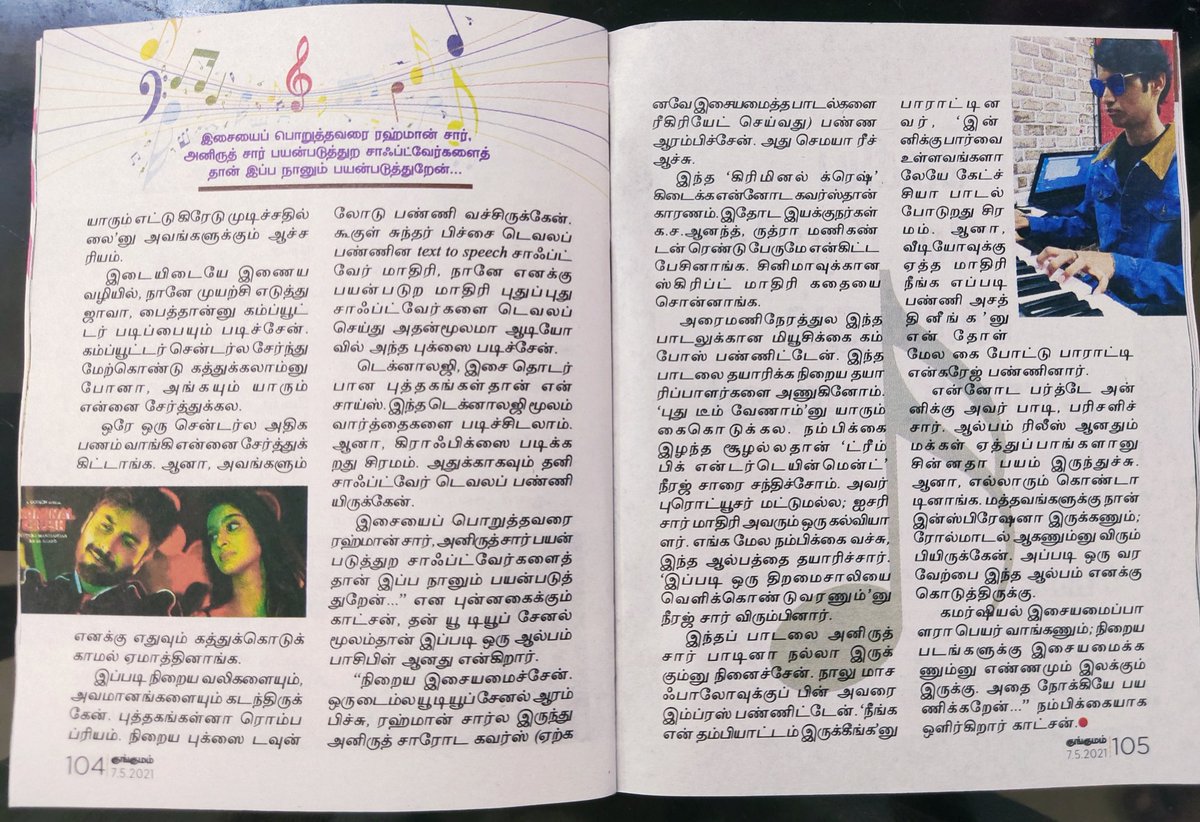 இசையைப் பொறுத்தவரை ரஹ்மான் சார்,
அனிருத் சார் பயன்படுத்துற சாஃப்ட்வேர்களைத்
தான் இப்ப நானும் பயன்படுத்துறேன்...
யாரும் எட்டு கிரேடு முடிச்சதில்
லை'னு அவங்களுக்கும் ஆச்ச
ரியம்.
இடையிடையே இணைய
வழியில், நானே முயற்சி எடுத்து
ஜாவா, பைத்தான்னு கம்ப்யூட்
டர் படிப்பையும் படிச்சேன்.
கம்ப்யூட்டர் சென்டர்ல சேர்ந்து
மேற்கொண்டு கத்துக்கலாம்னு
போனா, அங்கயும் யாரும்
என்னை சேர்த்துக்கல.
ஒரே ஒரு சென்டர்ல அதிக
பணம் வாங்கி என்னை சேர்த்துக்
கிட்டாங்க. ஆனா, அவங்களும்
எனக்கு எதுவும் கத்துக்கொடுக்
காமல் ஏமாத்தினாங்க.
இப்படி நிறைய வலிகளையும்,
அவமானங்களையும் கடந்திருக்
கேன். புத்தகங்கள்னா ரொம்ப
ப்ரியம். நிறைய புக்ஸை டவுன்
லோடு பண்ணி வச்சிருக்கேன்.
கூகுள் சுந்தர் பிச்சை டெவலப்
பண்ணின text to speech சாஃப்ட்
வேர் மாதிரி, நானே எனக்கு
பயன்படுற மாதிரி புதுப்புது
சாஃப்ட்வேர்களை டெவலப்
செய்து அதன்மூலமா ஆடியோ
வில் அந்த புக்ஸை படிச்சேன்.
டெக்னாலஜி, இசை தொடர்
பான புத்தகங்கள்தான் என்
சாய்ஸ். இந்த டெக்னாலஜி மூலம்
வார்த்தைகளை படிச்சிடலாம்.
ஆனா, கிராஃபிக்ஸை படிக்க
றது சிரமம். அதுக்காகவும் தனி
சாஃப்ட்வேர் டெவலப் பண்ணி
யிருக்கேன்.
இசையைப் பொறுத்தவரை
ரஹ்மான் சார், அனிருத் சார் பயன்
படுத்துற சாஃப்ட்வேர்களைத்
தான் இப்ப நானும் பயன்படுத்
துறேன்...” என புன்னகைக்கும்
காட்சன், தன் யூ டியூப் சேனல்
மூலம்தான் இப்படி ஒரு ஆல்பம்
பாசிபிள் ஆனது என்கிறார்.
“நிறைய இசையமைச்சேன்.
ஒருடைம்ல யூ டியூப் சேனல் ஆரம்
பிச்சு, ரஹ்மான் சார்ல இருந்து
அனிருத் சாரோட கவர்ஸ் (ஏற்க
104 குங்குமம்
7.5.2021
னவே இசையமைத்த பாடல்களை
ரீகிரியேட் செய்வது) பண்ண
ஆரம்பிச்சேன். அது செமயா ரீச்
ஆச்சு.
இந்த ‘கிரிமினல் க்ரெஷ்’
கிடைக்க என்னோட கவர்ஸ்தான்
காரணம். இதோட இயக்குநர்கள்
க.ச.ஆனந்த், ருத்ரா மணிகண்
டன் ரெண்டு பேருமே என்கிட்ட
பேசினாங்க. சினிமாவுக்கான
ஸ்கிரிப்ட் மாதிரி கதையை
சொன்னாங்க.
அரைமணிநேரத்துல இந்த
பாடலுக்கான மியூசிக்கை கம்
போஸ் பண்ணிட்டேன். இந்த
பாடலை தயாரிக்க நிறைய தயா
ரிப்பாளர்களை அணுகினோம்.
‘புது டீம் வேணாம்’னு யாரும்
கைகொடுக்கல. நம்பிக்கை
இழந்த சூழல்லதான் ‘ட்ரீம்
பிக் என்டர்டெயின்மென்ட்’
நீரஜ் சாரை சந்திச்சோம். அவர்
புரொட்யூசர் மட்டுமல்ல; ஐசரி
சார் மாதிரி அவரும் ஒரு கல்வியா
ளர். எங்க மேல நம்பிக்கை வச்சு,
இந்த ஆல்பத்தை தயாரிச்சார்.
‘இப்படி ஒரு திறமைசாலியை
வெளிக்கொண்டு வரணும்’னு
நீரஜ் சார் விரும்பினார்.
இந்தப் பாடலை அனிருத்
சார் பாடினா நல்லா இருக்
கும்னு நினைச்சேன். நாலு மாச
ஃபாலோவுக்குப் பின் அவரை
இம்ப்ரஸ் பண்ணிட்டேன். ‘நீங்க
என் தம்பியாட்டம் இருக்கீங்க’னு
பாராட்டின
வர், ‘இன்
னிக்கு பார்வை
உள்ளவங்களா
லேயே கேட்ச்
சியா பாடல்
போடுறது சிர
மம். ஆனா,
வீடியோவுக்கு
ஏத்த மாதிரி
நீங்க எப்படி
பண்ணி அசத்
தினீங்க’னு
என் தோள்
மேல கை போட்டு பாராட்டி
என்கரேஜ் பண்ணினார்.
என்னோட பர்த்டே அன்
னிக்கு அவர் பாடி, பரிசளிச்
சார். ஆல்பம் ரிலீஸ் ஆனதும்
மக்கள் ஏத்துப்பாங்களானு
சின்னதா பயம் இருந்துச்சு.
ஆனா, எல்லாரும் கொண்டா
டினாங்க. மத்தவங்களுக்கு நான்
இன்ஸ்பிரேஷனா இருக்கணும்;
ரோல்மாடல் ஆகணும்னு விரும்
பியிருக்கேன். அப்படி ஒரு வர
வேற்பை இந்த ஆல்பம் எனக்கு
கொடுத்திருக்கு.
கமர்ஷியல் இசையமைப்பா
ளரா பெயர் வாங்கணும்; நிறைய
படங்களுக்கு இசையமைக்க
ணும்னு எண்ணமும் இலக்கும்
இருக்கு. அதை நோக்கியே பய
ணிக்கறேன்...” நம்பிக்கையாக
ஒளிர்கிறார் காட்சன்.
குங்குமம் 105
7.5.2021